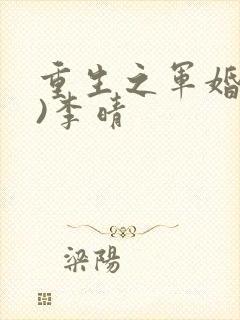 重生之军婚
)李晴
梁陽